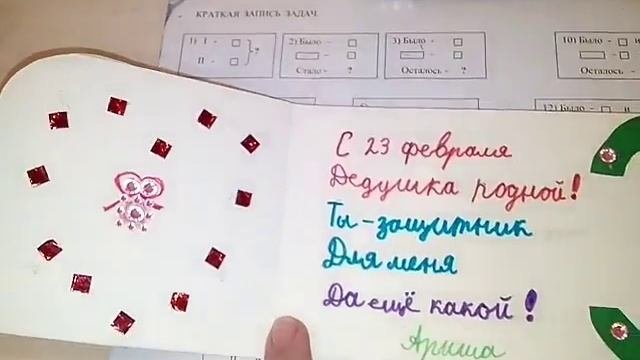 КРАТКАЯ ЗАПИСЬ ЗАДАЧ
1) I - }?
II -
2) Было -
Стало - ?
3) Было -
Осталось - ?
10) Было - и
Осталось -
12) Было - и
С 23 февраля
Дедушка родной!
Ты - защитник
Для меня
Да ещё какой!
Ариша